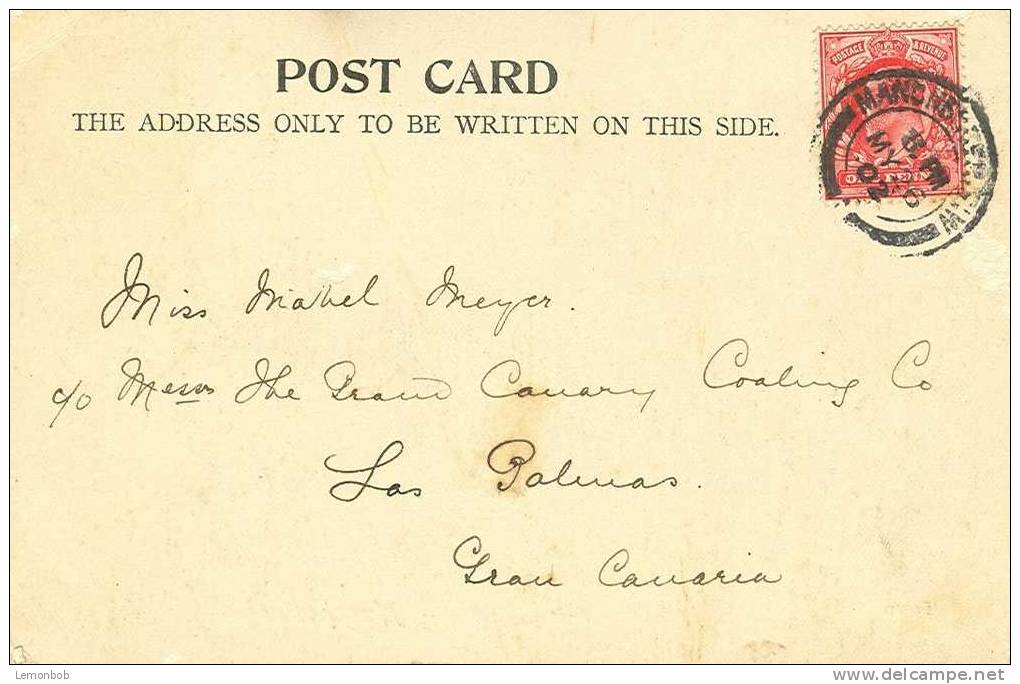 POST CARD
THE ADDRESS ONLY TO BE WRITTEN ON THIS SIDE.
POSTAGE & REVENUE
ONE PENNY
MANCHESTER
MY 02
Miss Mabel Meyer.
c/o Messrs The Grand Canary Coaling Co
Las Palmas.
Gran Canaria
Lemonbob
www.delcampe.net